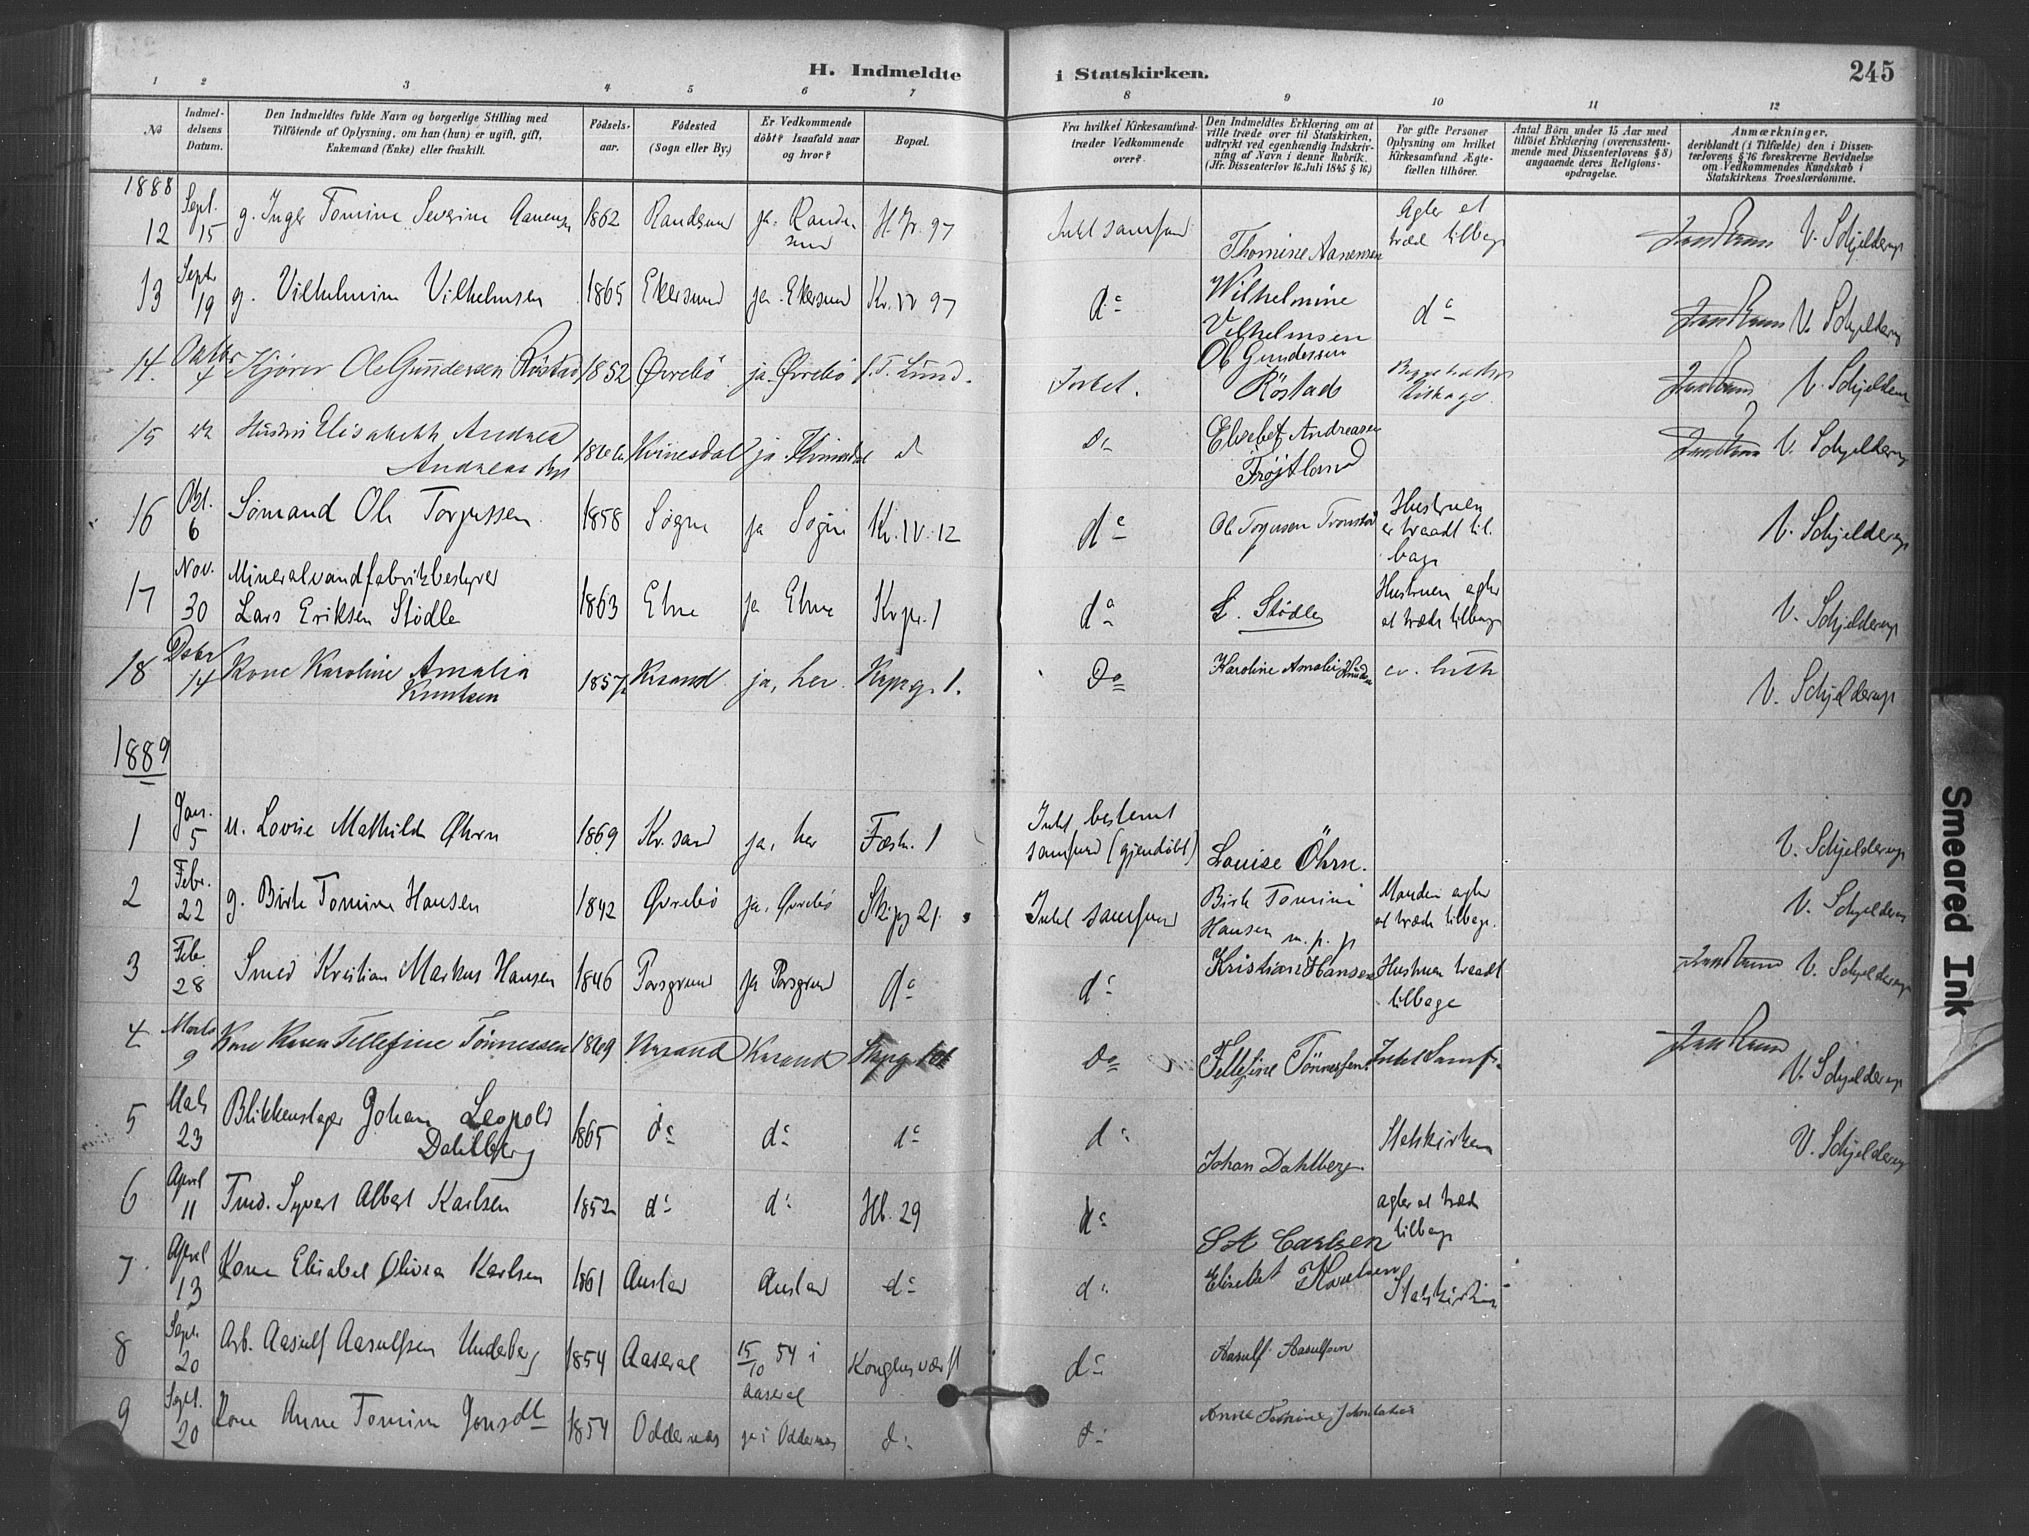 H. Indmeldte i Statskirken.
245
1 2 3 4 5 6 7 8 9 10 11 12
No
Indmel-
delsens
Datum.
Den Indmeldtes fulde Navn og borgerlige Stilling med
Tilföiende af Oplysning, om han (hun) er ugift, gift,
Enkemand (Enke) eller fraskilt.
Födsels-
aar.
Födested
(Sogn eller By.)
Er Vedkommende
döbt? Isaafald naar
og hvor?
Bopæl.
Fra hvilket Kirkesamfund
træder Vedkommende
over?
Den Indmeldtes Erklæring om at
ville træde over til Statskirken,
udtrykt ved egenhændig Indskriv-
ning af Navn i denne Rubrik.
(Jfr. Dissenterlov 16. Juli 1845 § 16.)
For gifte Personer
Oplysning om hvilket
Kirkesamfund Ægte-
fællen tilhörer.
Antal Börn under 15 Aar med
tilföiet Erklæring (overensstem-
mende med Dissenterlovens § 8)
angaaende deres Religions-
opdragelse.
Anmærkninger,
deriblandt (i Tilfælde) den i Dissen-
terlovens § 16 foreskrevne Bevidnelse
om Vedkommendes Kundskab i
Statskirkens Troeslærdomme.
1888
12 Sept. 15 g. Inger Tomine Severine Aanensen 1862 Randsund ja. Rande-
sund
97 Intet samfund Thomine Aanensen Agter at
træde tilbage V. Schjelderup
13 Septr 19 g. Vilhelmine Vilhelmsen 1865 Ekersund ja. Ekersund Kr. IV 97 do Wilhelmine
Vilhelmsen do V. Schjelderup
14. Octbr 4 Ole Gundersen Röstad 1852 Øvrebö ja. Øvrebö Lund. Intet. Ole Gundersen
Röstad V. Schjelderup
15 Hustru Elisabeth Andrea
Kvinesdal ja Do Elisebet Andreasen
Tröjtland V. Schjelderup
16 Okt. 6 Sömand Ole Torjussen 1858 Søgne ja Søgne Kr. IV. 12 do Ole Torjusen Hustruen
er traadt til-
bage V. Schjelderup
17 Nov. 30 Mineralvandfabrikbestyrer
Lars Eriksen Stödle 1863 Etne ja Etne 1 do L. Stödle Hustruen agter
at træde tilbage V. Schjelderup
18 Decbr 14 Kone Karoline Amalia
Knutsen 1857 Krsand ja, her 1. Do Karoline Amalie Knudsen ev. luth V. Schjelderup
1889
1 Jan. 5 u. Lovise Mathilde Øhrn 1869 Kr.sand ja, her Fæstn. 1 Intet bestemt
samfund (gjendøbt) Louise Öhrn. V. Schjelderup
2 Febr. 22 g. Birte Tomine Hansen 1842 Øvrebö ja, Øvrebö Skipg 21. Intet samfund Birte Tomine
Hansen m. p. p Manden agter
at træde tilbage. V. Schjelderup
3 Feb. 28 Smed Kristian Markus Hansen 1846 Porsgrund ja Porsgrund do do Kristian Hansen Hustruen traadt
tilbage V. Schjelderup
4 Marts 9 Kone Karen Tellefine Tönnessen 1869 Krsand Krsand Do Tellefine Tönnessen Intet Samf. V. Schjelderup
5 Mats 23 Blikkenslager Johan Leopold
Dahlberg 1865 do do do do Johan Dahlberg Statskirken V. Schjelderup
6 April 11 Tmd. Syvert Albert Karlsen 1852 do do 29 do S A Carlsen agter at træde
tilbage
7. April 13 Kone Elisabet Olivia Karlsen 1861 do do Elisebet Karlsen Statskirken
8 Sept. 20 Arb. Aasulf Aasulfsen Undeberg 1854 Aaseral 15/10 54 i
Aaseral do Aasulf Aasulfsen
9 Sept. 20 Kone Anne Tomine 1854 Oddernæs ja i Oddernæs do do Anne Tomine
Smeared Ink